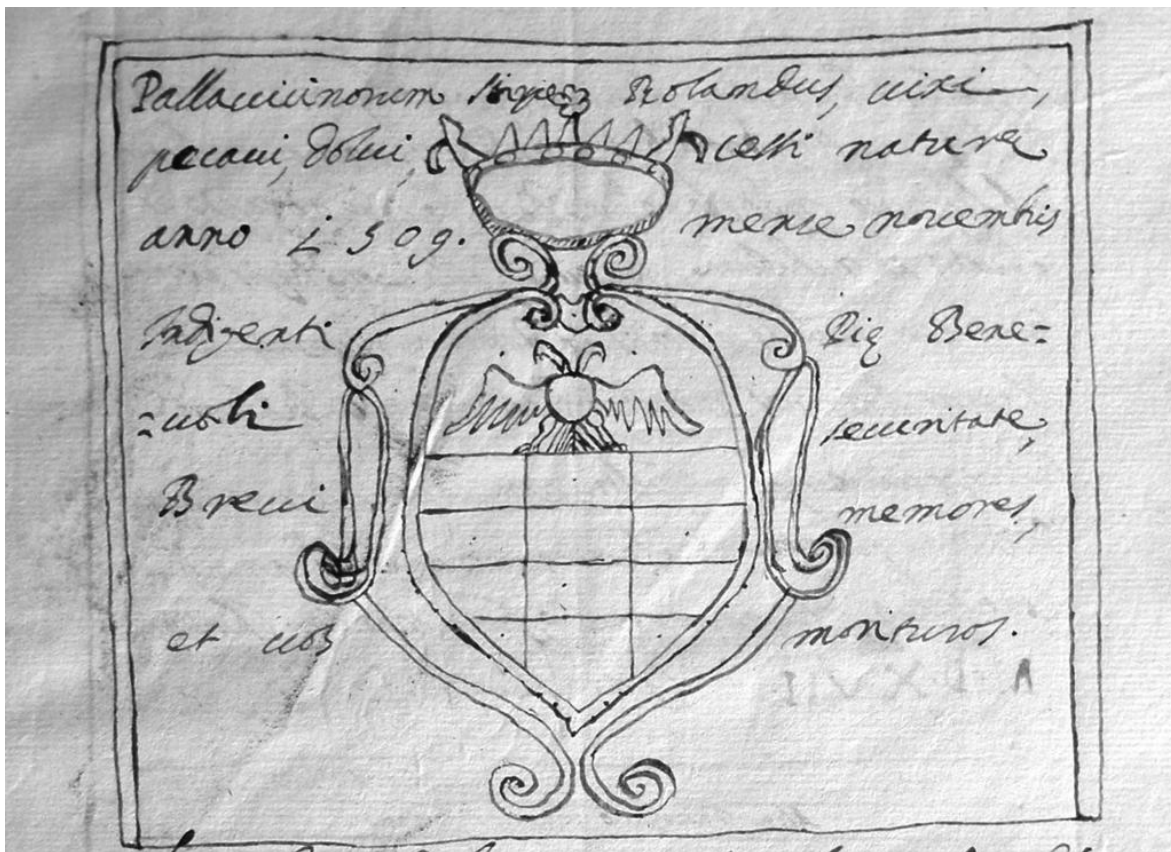 Pallavicinorum stirpis Rolandus, vixi,
pecavi, dolui, cessi nature
anno 1509. mense novembris
Indigenti Pię Bene=
=voli securitate,
Brevi memores,
et vos morituros.